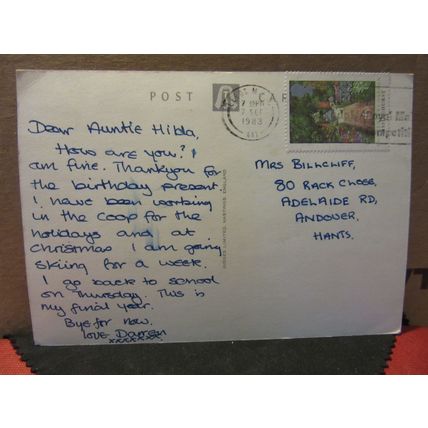 POST CARD
7 SEP
1983
Dear Auntie Hilda,
How are you? I
am fine. Thankyou for
the birthday present
I have been working
in the coop for the
holidays and at
christmas I am going
skiing for a week.
I go back to school
on Thursday. This is
my final year.
Bye for now.
love Darren
xxxxxxx
MRS BILLCLIFF,
80 RACK CLOSE,
ADELAIDE RD,
ANDOVER,
HANTS.